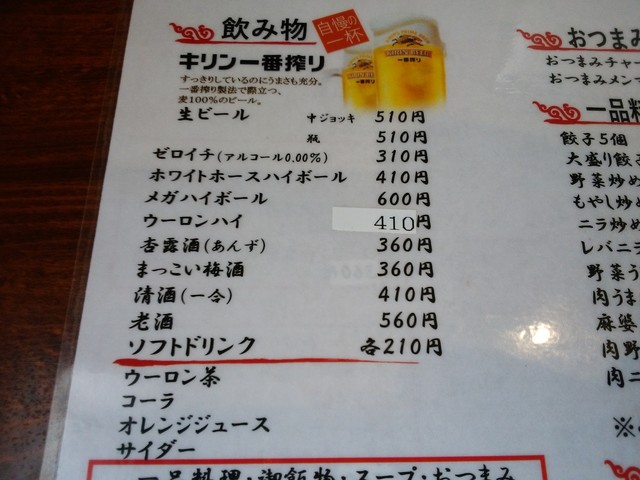 飲み物
自慢の
一杯
キリン一番搾り
すっきりしているのにうまさも充分。
一番搾り製法で際立つ、
麦100%のビール。
一番搾り
生ビール 中ジョッキ 510円
瓶 510円
ゼロイチ(アルコール0.00%) 310円
ホワイトホースハイボール 410円
メガハイボール 600円
ウーロンハイ 410円
杏露酒(あんず) 360円
まっこい梅酒 360円
清酒(一合) 410円
老酒 560円
ソフトドリンク 各210円
ウーロン茶
コーラ
オレンジジュース
サイダー
一品料理・御飯物・スープ・おつまみ
おつまみ
おつまみチャー
おつまみメン
一品料
餃子5個
大盛り餃子
野菜炒め
もやし炒め
ニラ炒め
レバニラ
野菜う
肉うま
麻婆
肉野
肉ニ
※